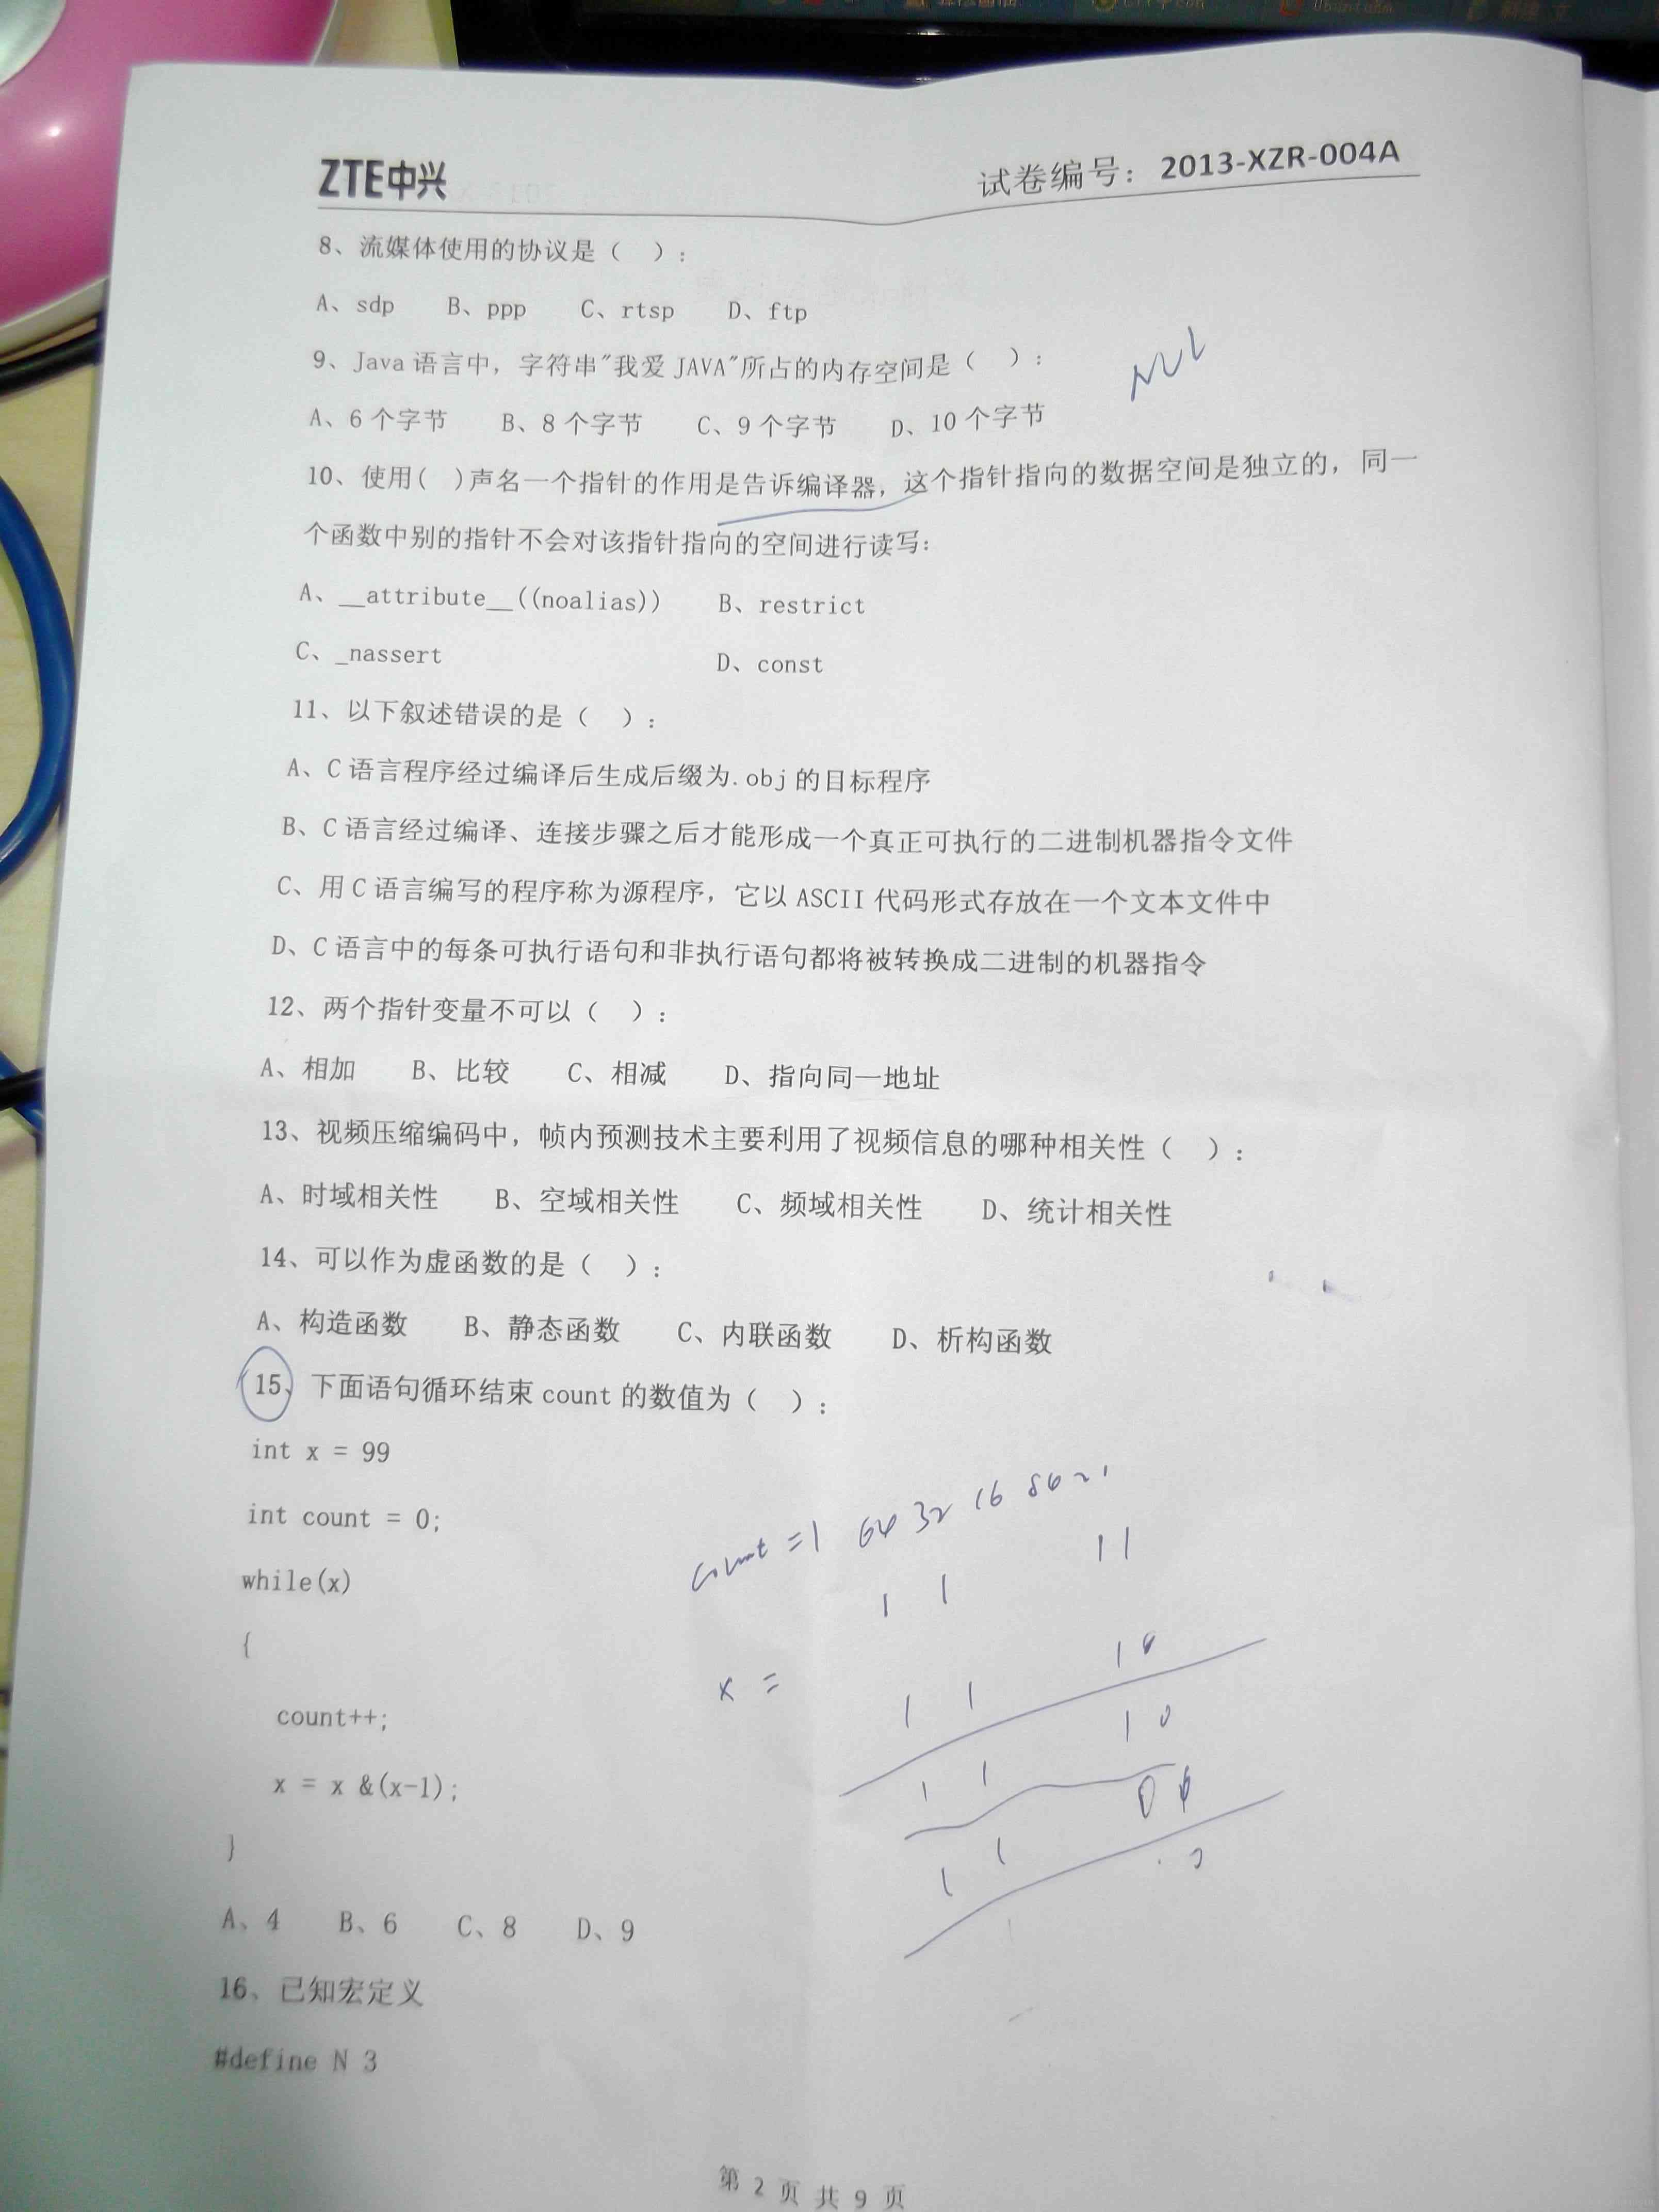 ZTE中兴 试卷编号：2013-XZR-004A
8、流媒体使用的协议是（ ）：
A、sdp B、ppp C、rtsp D、ftp
9、Java 语言中，字符串"我爱 JAVA"所占的内存空间是（ ）：
NUL
A、6 个字节 B、8 个字节 C、9 个字节 D、10 个字节
10、使用( )声名一个指针的作用是告诉编译器，这个指针指向的数据空间是独立的，同一
个函数中别的指针不会对该指针指向的空间进行读写：
A、__attribute__((noalias)) B、restrict
C、_nassert D、const
11、以下叙述错误的是（ ）：
A、C 语言程序经过编译后生成后缀为.obj 的目标程序
B、C 语言经过编译、连接步骤之后才能形成一个真正可执行的二进制机器指令文件
C、用 C 语言编写的程序称为源程序，它以 ASCII 代码形式存放在一个文本文件中
D、C 语言中的每条可执行语句和非执行语句都将被转换成二进制的机器指令
12、两个指针变量不可以（ ）：
A、相加 B、比较 C、相减 D、指向同一地址
13、视频压缩编码中，帧内预测技术主要利用了视频信息的哪种相关性（ ）：
A、时域相关性 B、空域相关性 C、频域相关性 D、统计相关性
14、可以作为虚函数的是（ ）：
A、构造函数 B、静态函数 C、内联函数 D、析构函数
15、下面语句循环结束 count 的数值为（ ）：
int x = 99
int count = 0;
count =1 64 32 16 8 4 2 1
while(x)
1 1 1 1
{
x = 1 1 1 0
count++;
1 1 1 0
x = x &(x-1);
}
1 1
A、4 B、6 C、8 D、9
16、已知宏定义
#define N 3
第 2 页 共 9 页